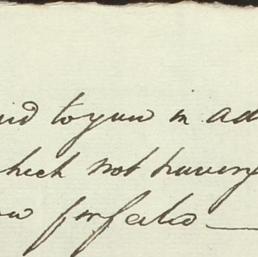 to you in ad
which not having
forfeited